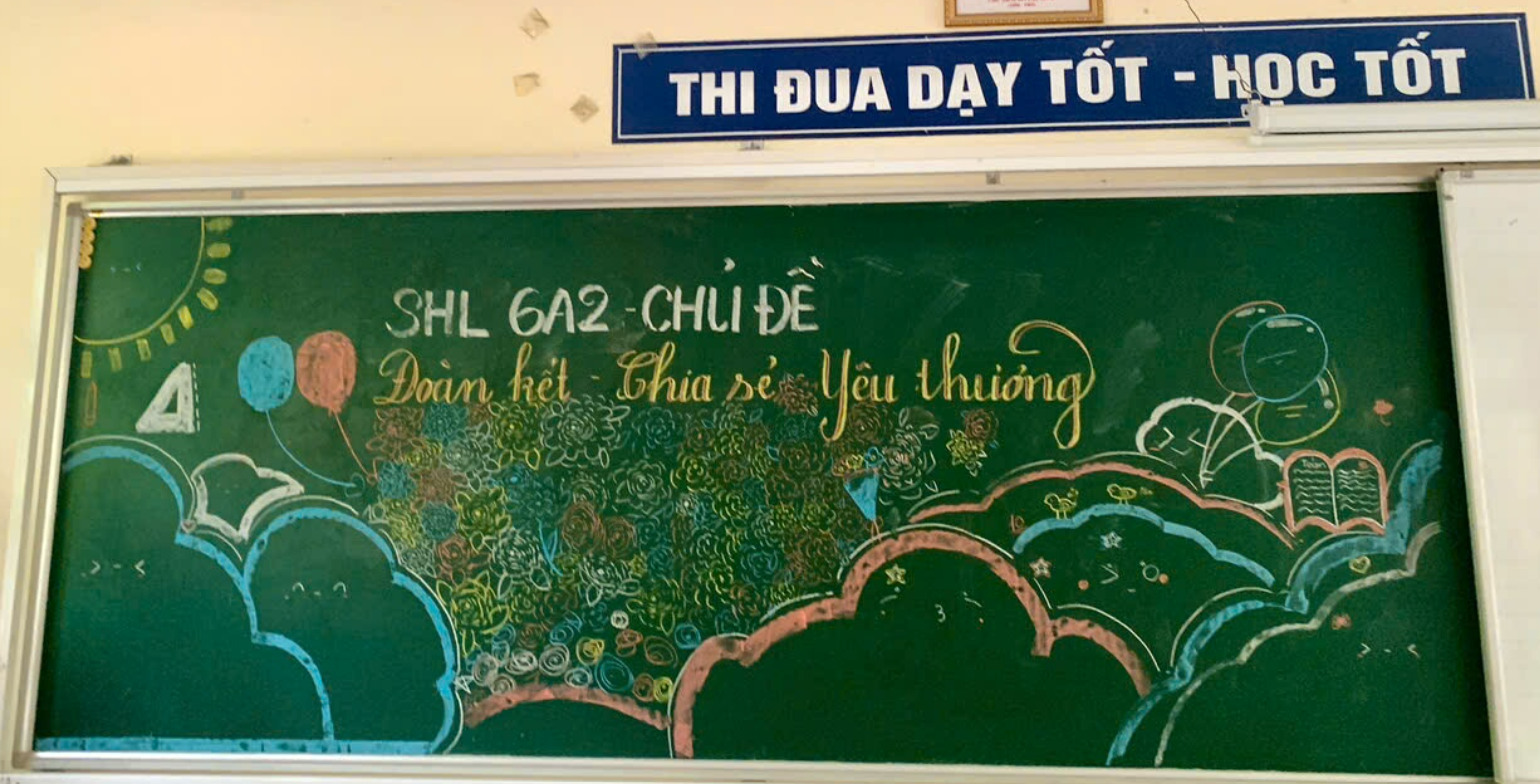 THI ĐUA DẠY TỐT - HỌC TỐT
SHL 6A2 - CHỦ ĐỀ
Đoàn kết - Chia sẻ - Yêu thương
Toán